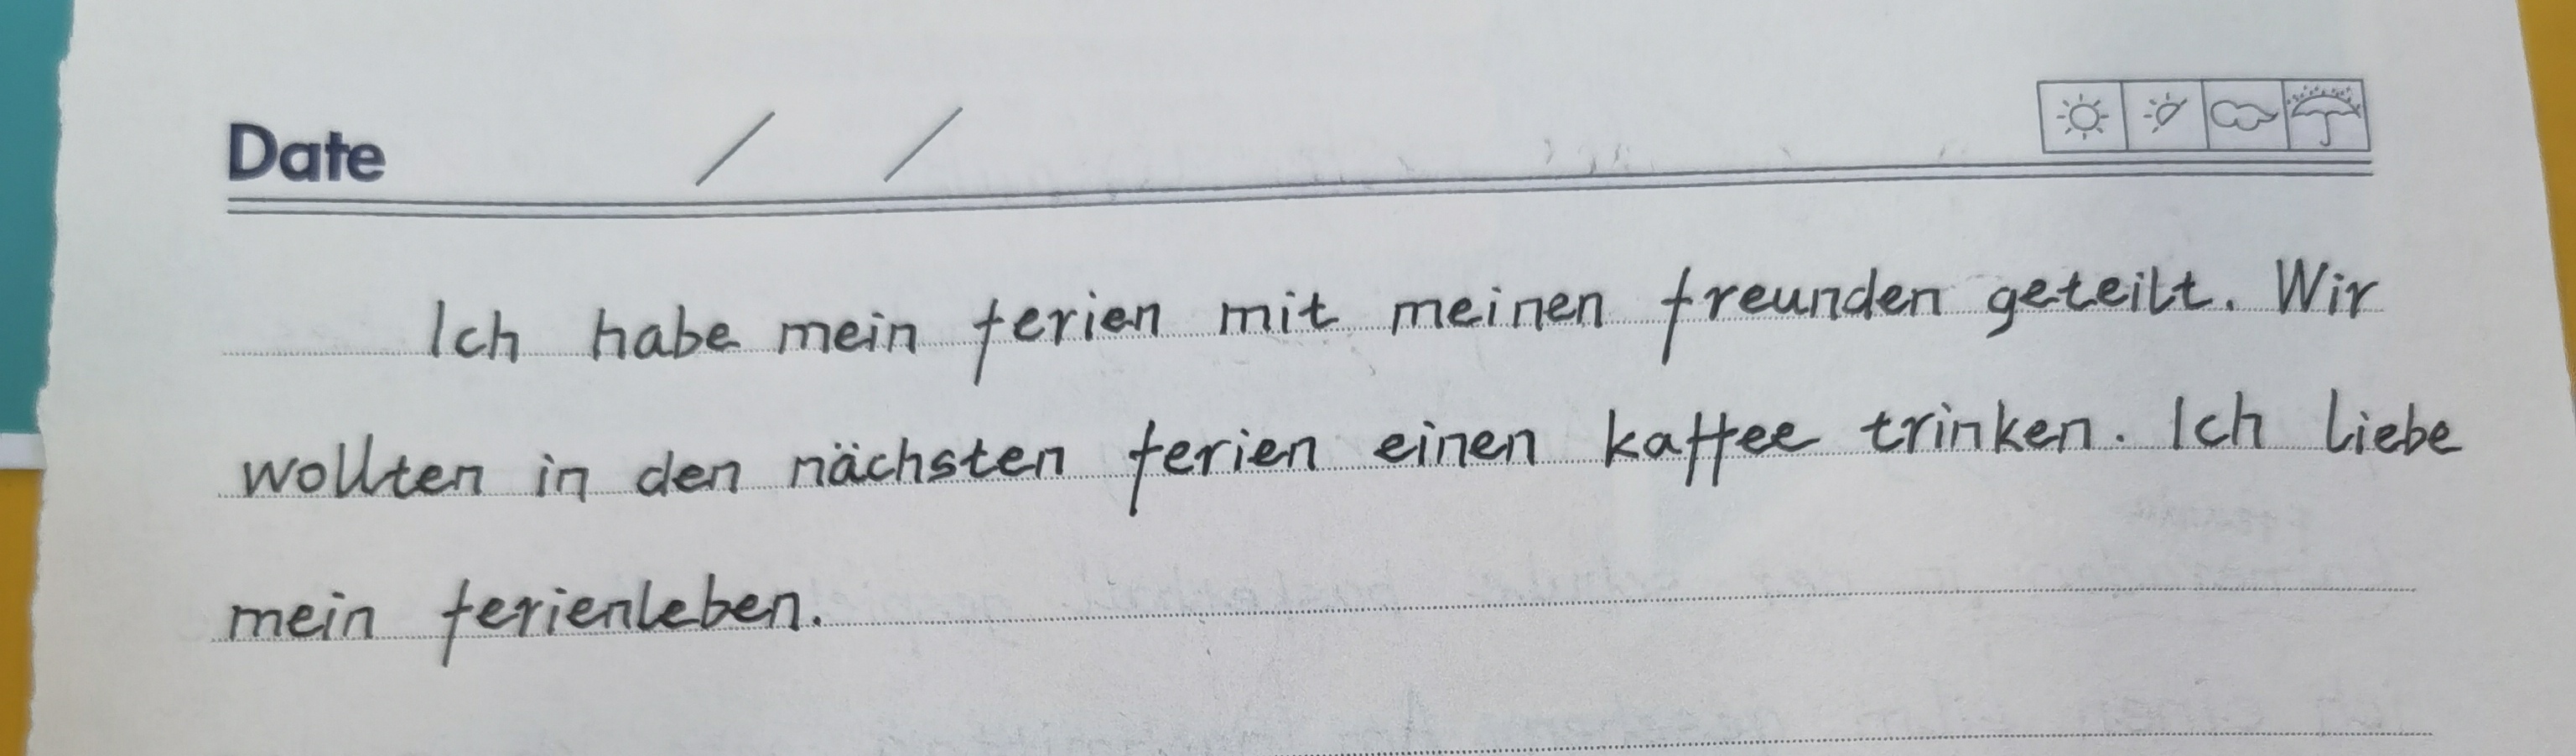 Date / /
Ich habe mein ferien mit meinen freunden geteilt. Wir
wollten in den nächsten ferien einen kaffee trinken. Ich liebe
mein ferienleben.